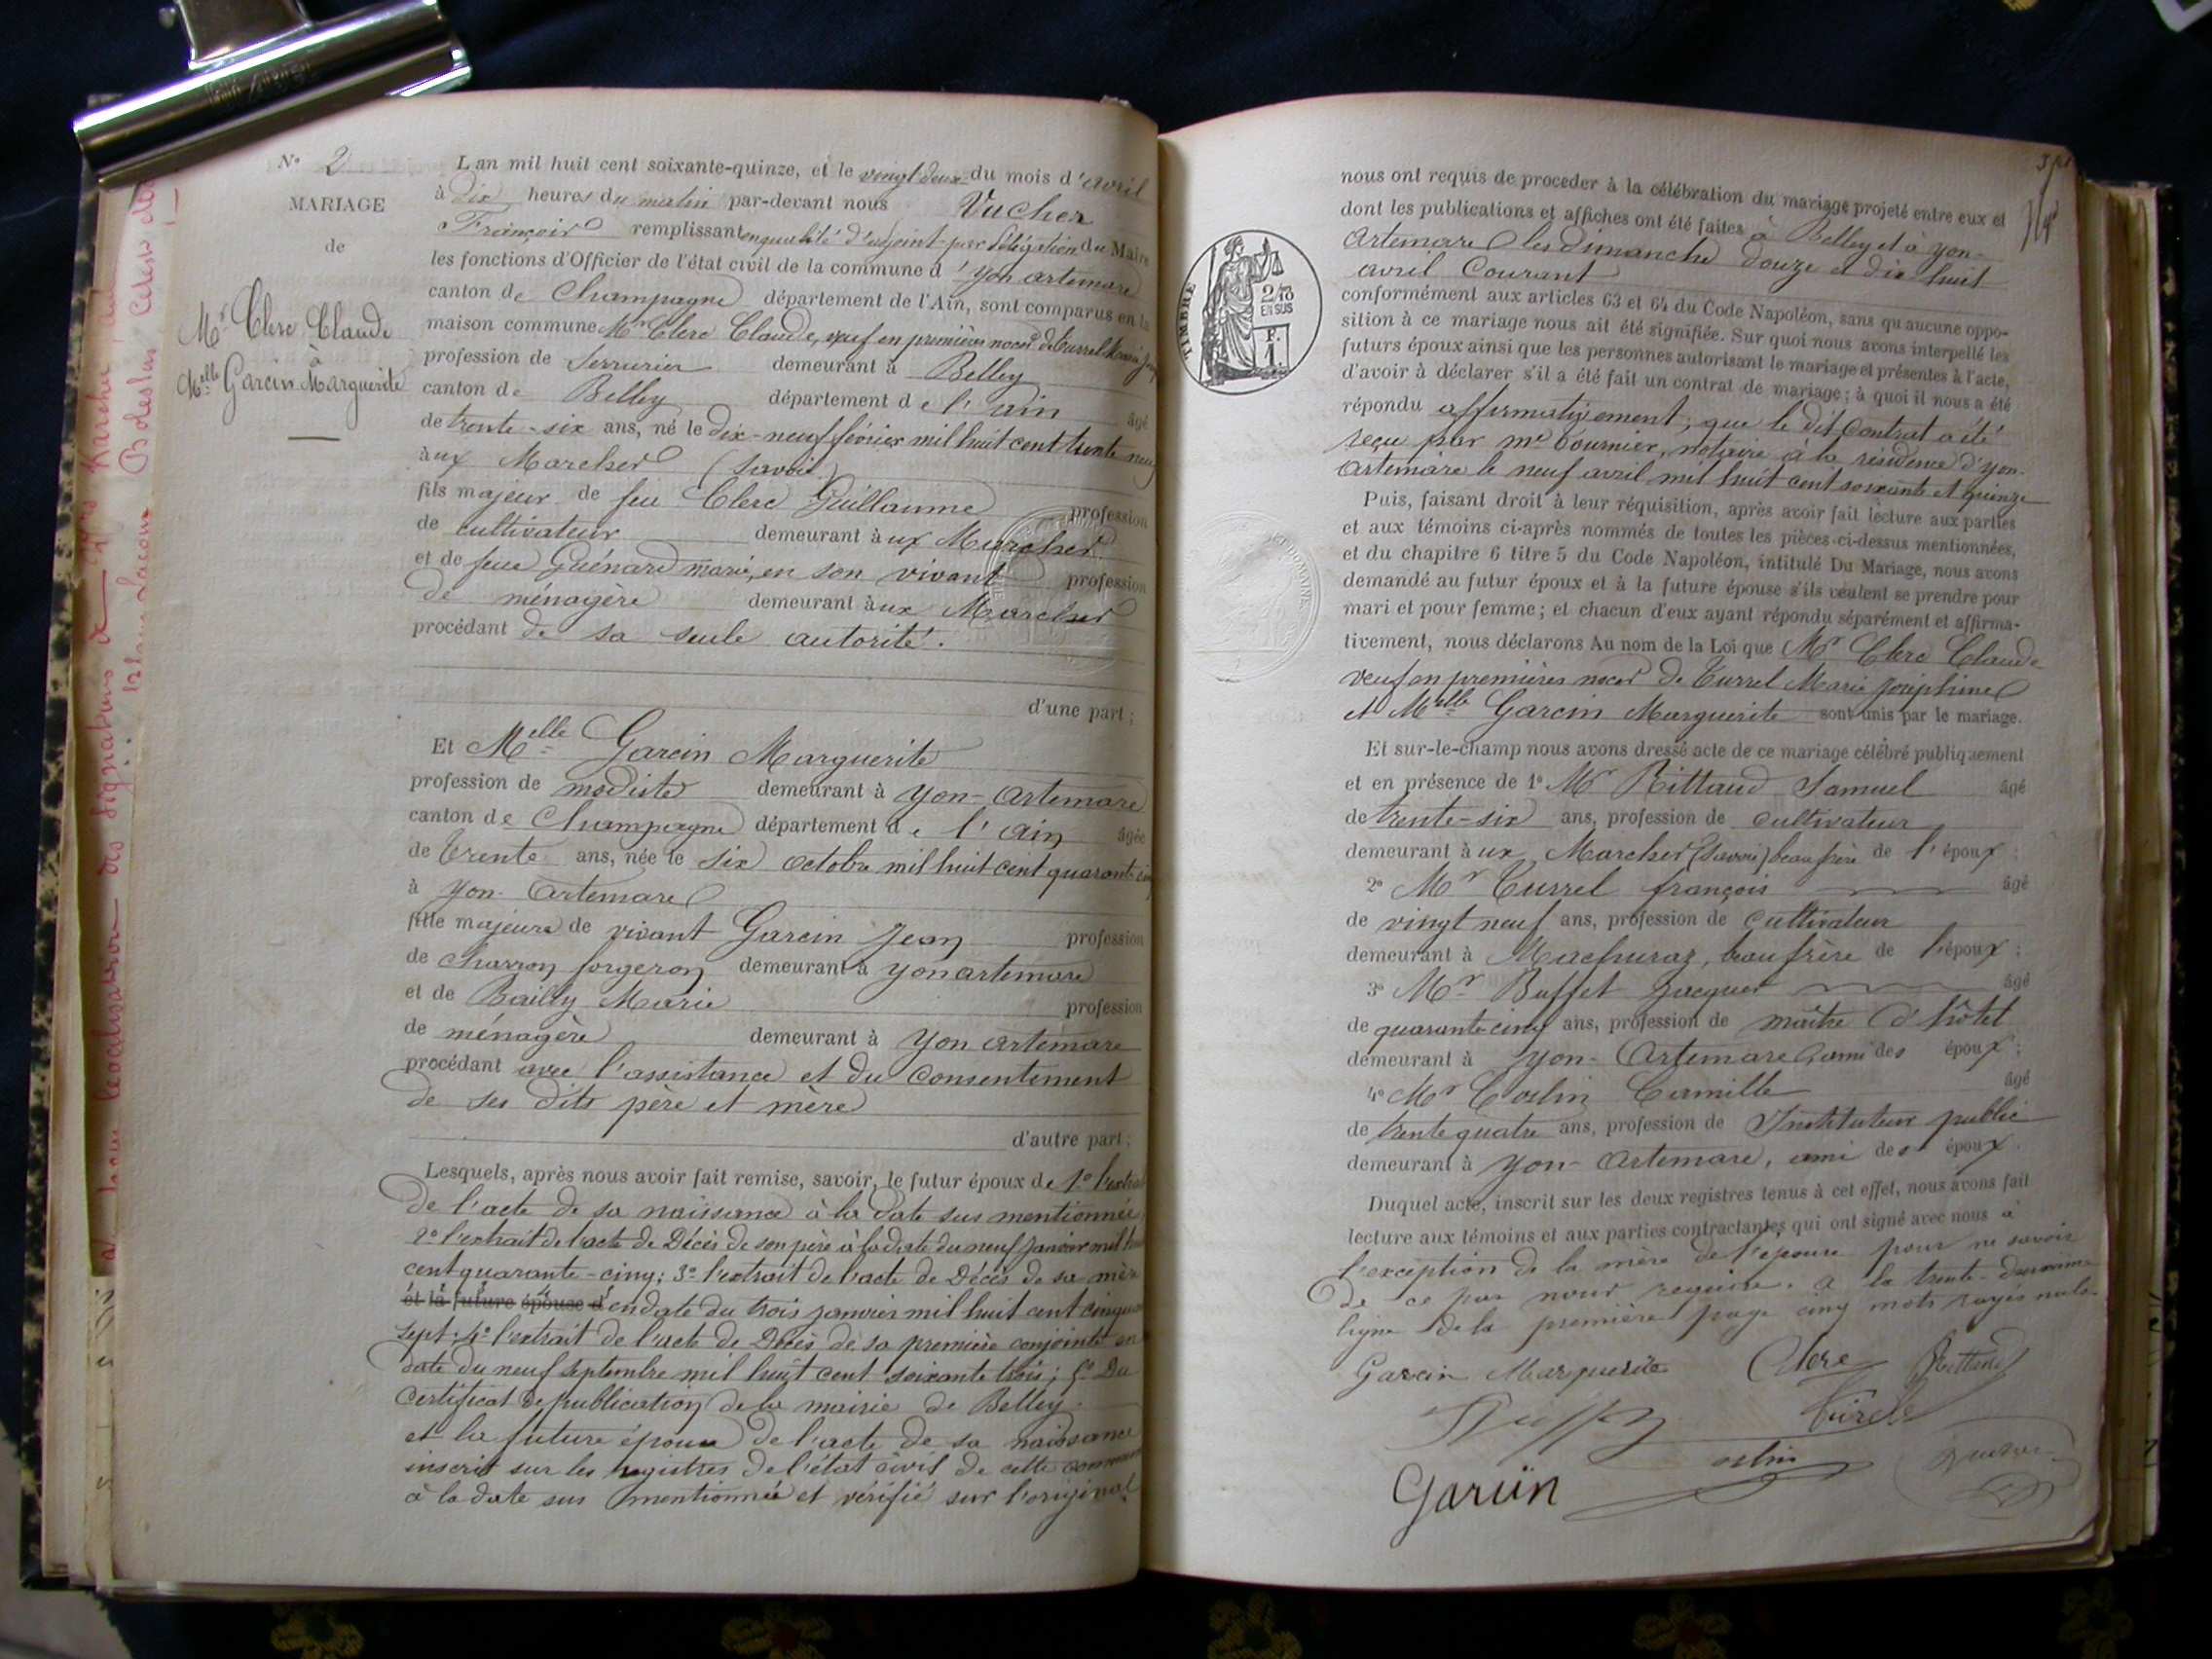 N° 2
MARIAGE
de
Mr Clerc Claude
à
Melle Garcin Marguerite
L'an mil huit cent soixante-quinze, et le vingt deux du mois d'avril
à dix heures du matin par-devant nous Vucher
François remplissant en qualité d'adjoint par délégation du Maire
les fonctions d'Officier de l'état civil de la commune d'yon artemare
canton de Champagne département de l'Ain, sont comparus en la
maison commune Mr Clerc Claude, veuf en premières noces de Turrel Marie
profession de Serrurier demeurant à Belley
canton de Belley département de l'ain âgé
de trente-six ans, né le dix-neuf février mil huit cent trente neuf
à ux Marcher (Savoie)
fils majeur de feu Clerc Guillaume profession
de cultivateur demeurant à ux Marcher
et de feue Guénard marie, en son vivant profession
de ménagère demeurant à ux Marcher
procédant de sa seule autorité.
d'une part;
Et Melle Garcin Marguerite
profession de modiste demeurant à yon-artemare
canton de Champagne département de l'ain âgée
de trente ans, née le six octobre mil huit cent quarante
à yon-artemare
fille majeure de vivant Garcin Jean profession
de charron forgeron demeurant à yon artemare
et de Bailly Marie profession
de ménagère demeurant à yon artemare
procédant avec l'assistance et du consentement
de ses dits père et mère
d'autre part;
Lesquels, après nous avoir fait remise, savoir, le futur époux de 1° l'extrait
de l'acte de sa naissance à la date sus mentionnée
2° l'extrait de l'acte de Décès de son père à la date du neuf janvier mil huit
cent quarante-cinq; 3° l'extrait de l'acte de Décès de sa mère
et la future épouse d en date du trois janvier mil huit cent cinquante
sept; 4° l'extrait de l'acte de Décès de sa première conjointe en
date du neuf septembre mil huit cent soixante trois; 5° Du
certificat de publication de la mairie de Belley.
et la future épouse de l'acte de sa naissance
inscrit sur les registres de l'état civil de cette commune
à la date sus mentionnée et vérifié sur l'original
nous ont requis de procéder à la célébration du mariage projeté entre eux et
dont les publications et affiches ont été faites à Belley et à yon-
artemare les dimanche douze et dix huit
avril courant
conformément aux articles 63 et 64 du Code Napoléon, sans qu'aucune oppo-
sition à ce mariage nous ait été signifiée. Sur quoi nous avons interpellé les
futurs époux ainsi que les personnes autorisant le mariage et présentes à l'acte,
d'avoir à déclarer s'il a été fait un contrat de mariage; à quoi il nous a été
répondu affirmativement; que le dit contrat a été
reçu par me Tournier, notaire à la résidence d'yon-
artemare le neuf avril mil huit cent soixante et quinze
Puis, faisant droit à leur réquisition, après avoir fait lecture aux parties
et aux témoins ci-après nommés de toutes les pièces ci-dessus mentionnées,
et du chapitre 6 titre 5 du Code Napoléon, intitulé Du Mariage, nous avons
demandé au futur époux et à la future épouse s'ils veulent se prendre pour
mari et pour femme; et chacun d'eux ayant répondu séparément et affirma-
tivement, nous déclarons Au nom de la Loi que Mr Clerc Claude
veuf en premières noces de Turrel Marie Joséphine
et Melle Garcin Marguerite sont unis par le mariage.
Et sur-le-champ nous avons dressé acte de ce mariage célébré publiquement
et en présence de 1° Mr Rittaud Samuel âgé
de trente-six ans, profession de cultivateur
demeurant à ux Marcher (Savoie) beau frère de l'époux;
2° Mr Turrel françois âgé
de vingt neuf ans, profession de cultivateur
demeurant à Machuraz, beau frère de l'époux;
3° Mr Buffet Jacques âgé
de quarante cinq ans, profession de maître d'hôtel
demeurant à yon-Artemare ami des époux;
4° Mr Coslin Camille âgé
de trente quatre ans, profession de Instituteur public
demeurant à yon-artemare, ami des époux.
Duquel acte, inscrit sur les deux registres tenus à cet effet, nous avons fait
lecture aux témoins et aux parties contractantes qui ont signé avec nous à
l'exception de la mère de l'épouse pour ne savoir
de ce par nous requise. a la trente-deuxième
ligne de la première page cinq mots rayés nuls
Garcin Marguerite Clerc Rittaud
Garcin
TIMBRE
2/10
EN SUS
F.
1.